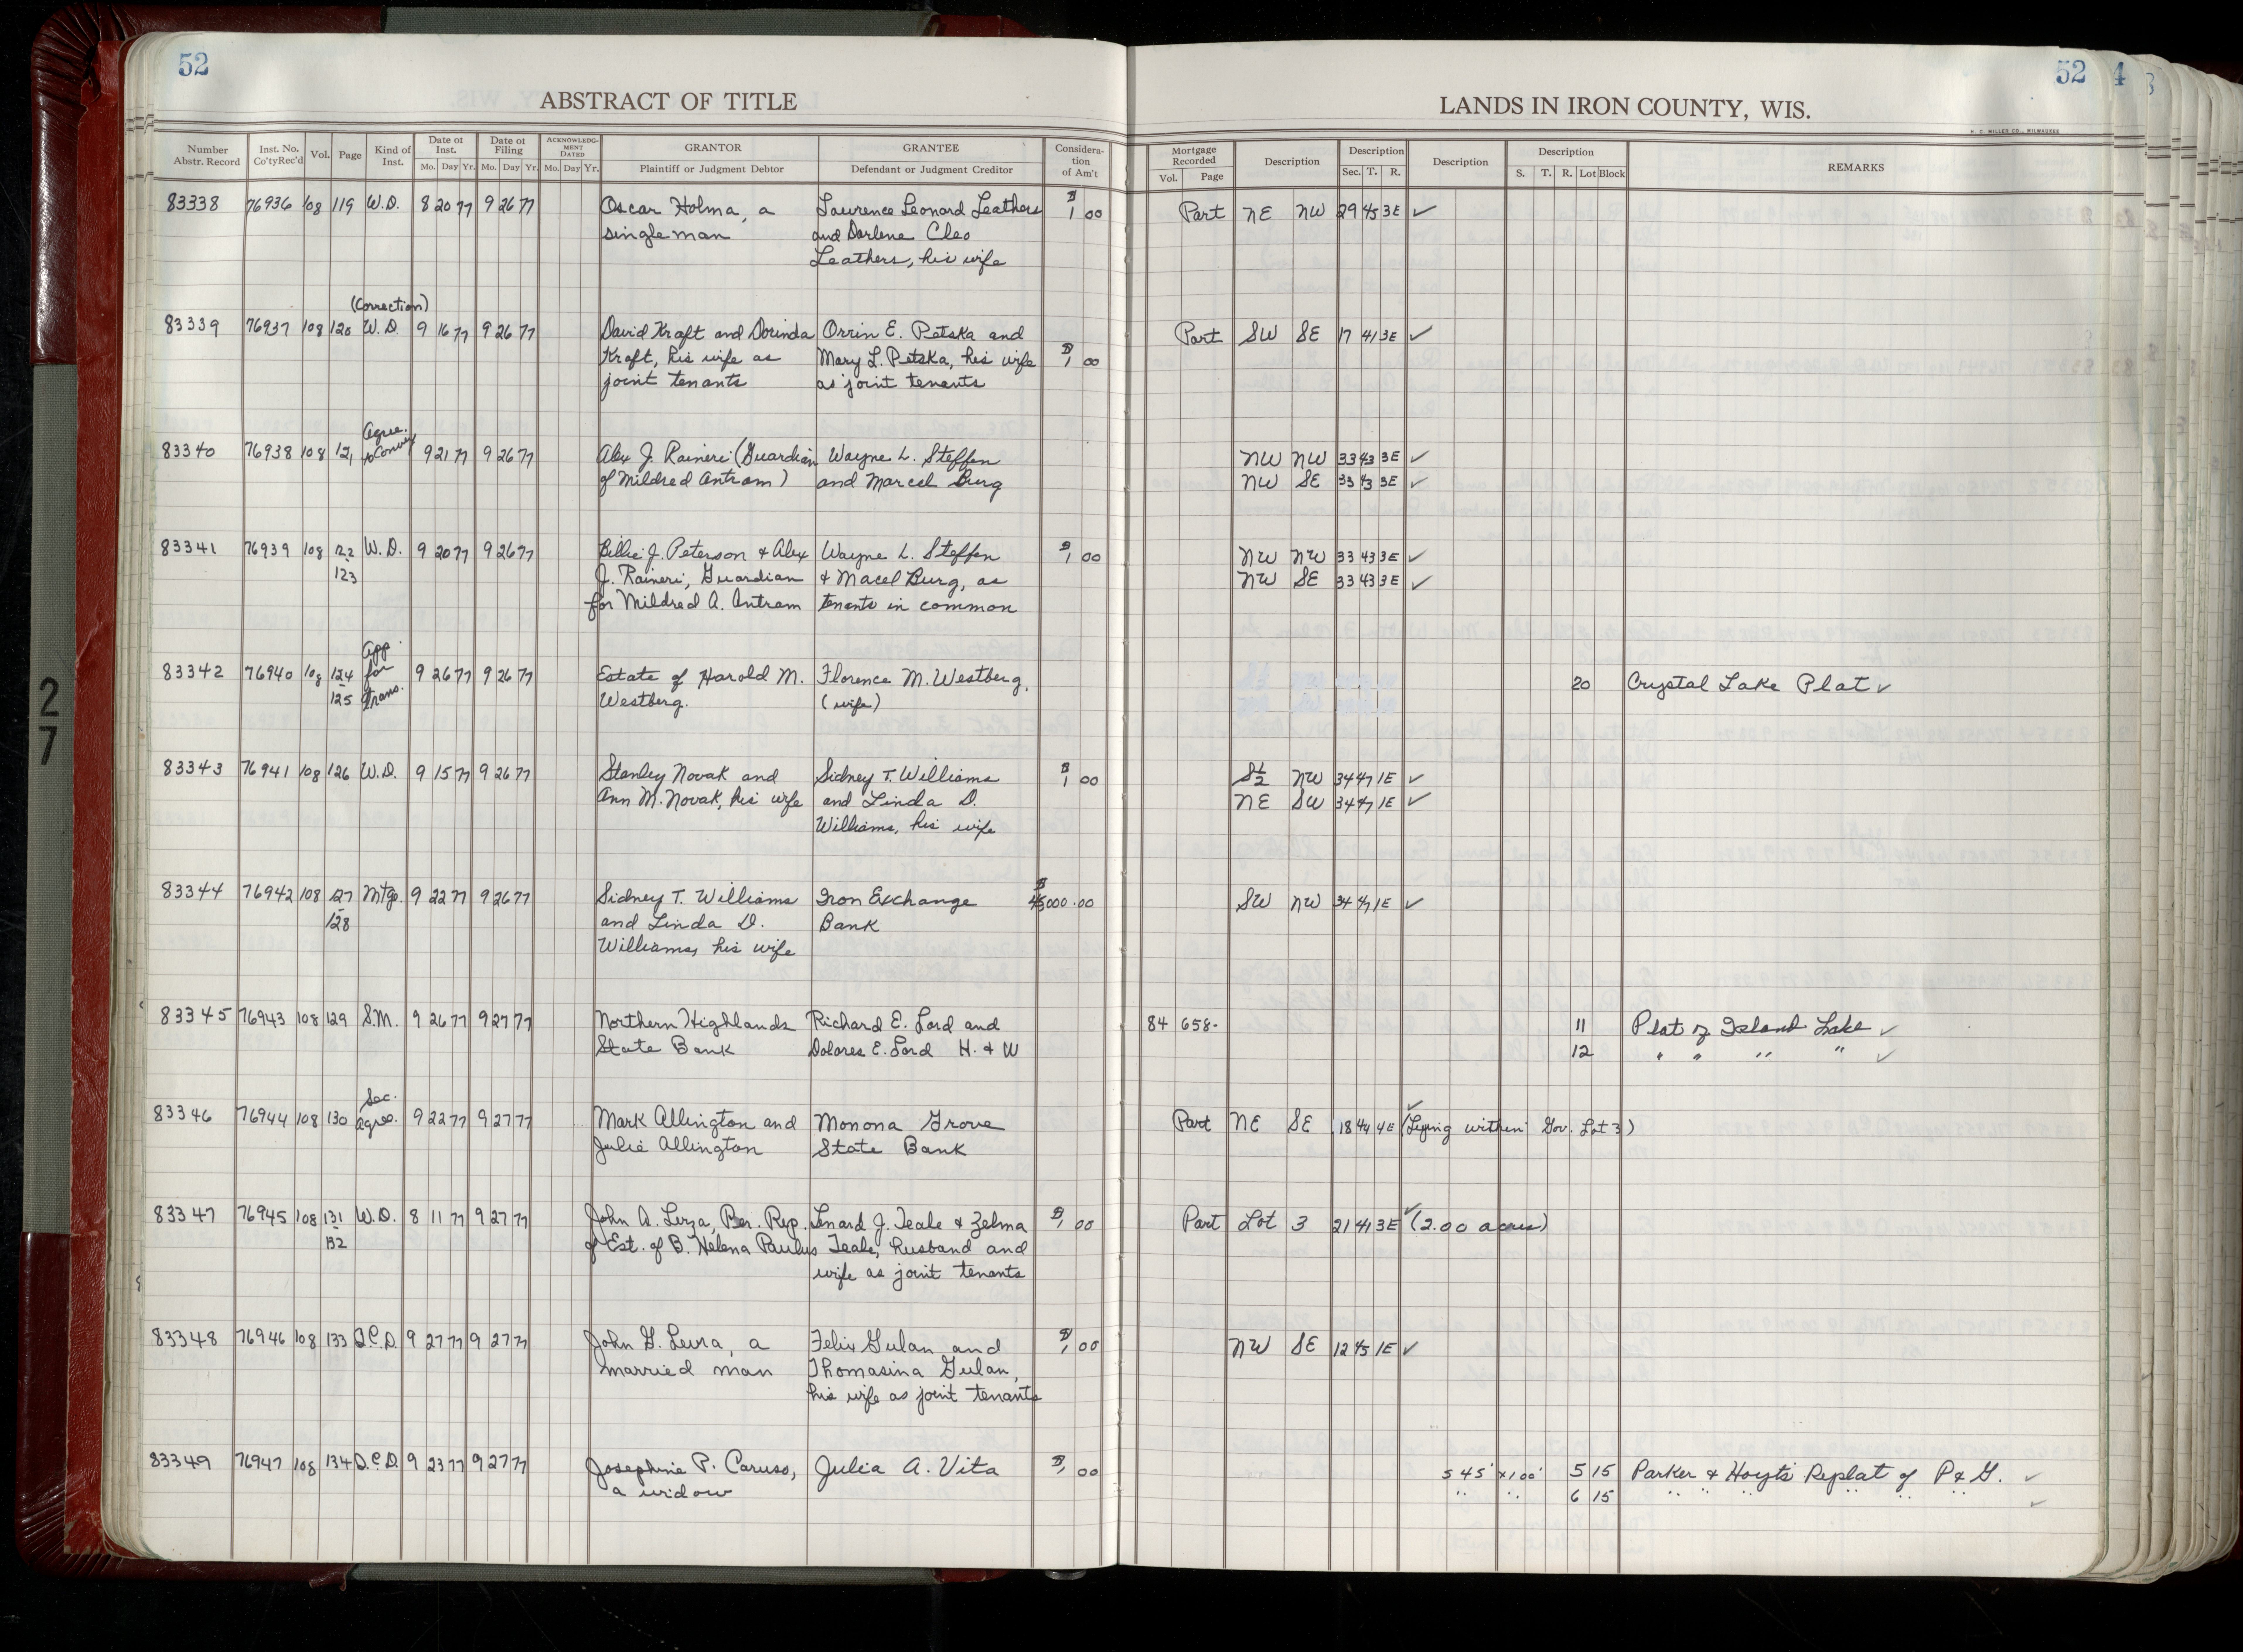 52
ABSTRACT OF TITLE
Number Abstr. Record
Inst. No. Co'ty Rec'd
Vol.
Page
Kind of Inst.
Date of Inst.
Mo. Day Yr.
Date of Filing
Mo. Day Yr.
ACKNOWLEDGMENT DATED
Mo. Day Yr.
GRANTOR
Plaintiff or Judgment Debtor
GRANTEE
Defendant or Judgment Creditor
Consideration of Am't
83338 76936 108 119 W.D. 8 20 77 9 26 77 Oscar Holma, a Lawrence Leonard Leathers $1 00
single man and Darlene Cleo
Leathers, his wife
(Correction)
83339 76937 108 120 W.D. 9 16 77 9 26 77 David Kraft and Dorinda Orrin E. Petska and
Kraft, his wife as Mary L. Petska, his wife $1 00
joint tenants as joint tenants
Agree.
83340 76938 108 121 to Convey 9 21 77 9 26 77 Alex J. Raineri (Guardian Wayne L. Steffen
of Mildred Antram) and Marcel Burg
83341 76939 108 122 W.D. 9 20 77 9 26 77 Billie J. Peterson & Alex Wayne L. Steffen $1 00
123 J. Raineri, Guardian & Macel Burg, as
for Mildred A. Antram tenants in common
App.
83342 76940 108 124 for 9 26 77 9 26 77 Estate of Harold M. Florence M. Westberg.
125 Trans. Westberg. (wife)
83343 76941 108 126 W.D. 9 15 77 9 26 77 Stanley Novak and Sidney T. Williams $1 00
Ann M. Novak, his wife and Linda D.
Williams, his wife
83344 76942 108 127 Mtg. 9 22 77 9 26 77 Sidney T. Williams Iron Exchange 000.00
128 and Linda D. Bank
Williams, his wife
83345 76943 108 129 S.M. 9 26 77 9 27 77 Northern Highlands Richard E. Lord and
State Bank Dolores E. Lord H. & W
Sec.
83346 76944 108 130 Agree. 9 22 77 9 27 77 Mark Allington and Monona Grove
Julie Allington State Bank
83347 76945 108 131 W.D. 8 11 77 9 27 77 John A. Per. Rep. Lenard J. Teale & Zelma $1 00
132 of Est. of B. Helena Paulus Teale, husband and
wife as joint tenants
83348 76946 108 133 Q.C.D. 9 27 77 9 27 77 John G. a Felix Gulan and $1 00
married man Thomasina Gulan,
his wife as joint tenants
83349 76947 108 134 Q.C.D. 9 23 77 9 27 77 Josephine P. Caruso, Julia A. Vita $1 00
a widow
52
LANDS IN IRON COUNTY, WIS.
H. C. MILLER CO., MILWAUKEE
Mortgage Recorded
Vol. Page
Description
Description
Sec. T. R.
Description
Description
S. T. R. Lot Block
REMARKS
Part NE NW 29 45 3E ✓
Part SW SE 17 41 3E ✓
NW NW 33 43 3E ✓
NW SE 33 43 3E ✓
NW NW 33 43 3E ✓
NW SE 33 43 3E ✓
20 Crystal Lake Plat ✓
S½ NW 34 47 1E ✓
NE SW 34 47 1E ✓
SW NW 34 47 1E ✓
84 658- 11 Plat of Island Lake ✓
12 " " " " ✓
Part NE SE 18 44 4E (Lying within Gov. Lot 3) ✓
Part Lot 3 21 41 3E (2.00 acres) ✓
NW SE 12 45 1E ✓
S 45' x 100' 5 15 Parker & Hoyt's Replat of P & G. ✓
" " 6 15 " " " " " " ✓
27